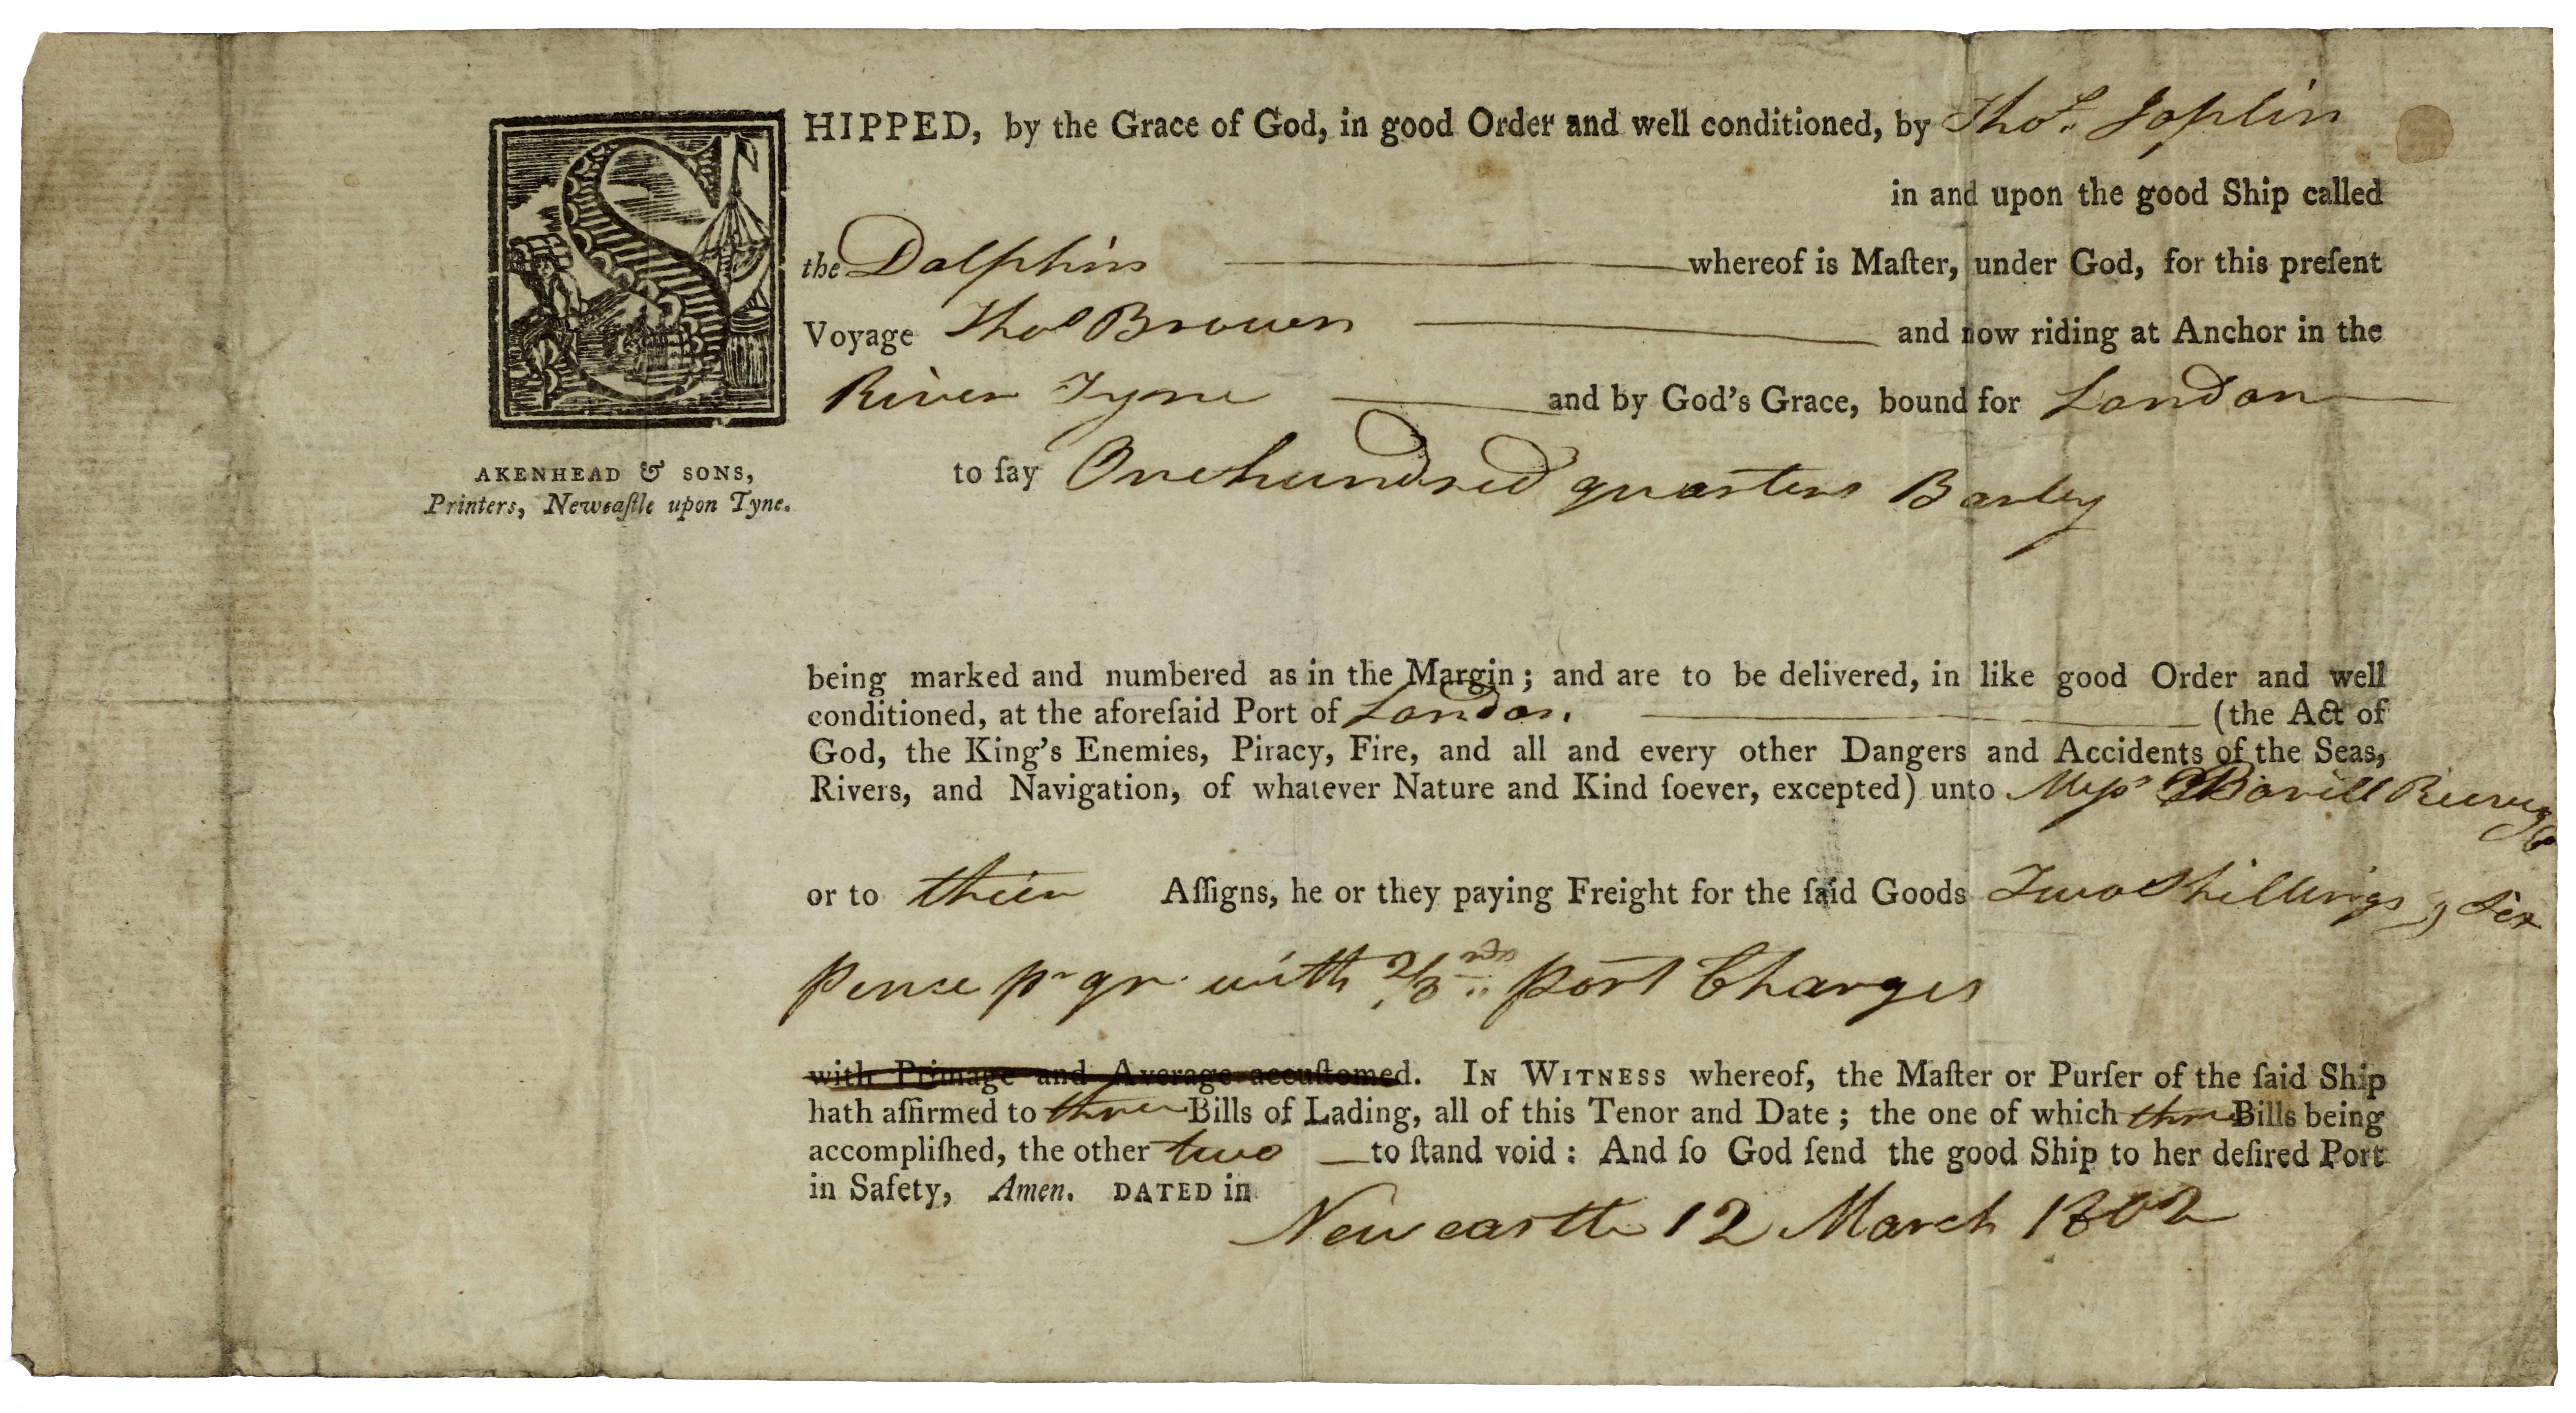 SHIPPED, by the Grace of God, in good Order and well conditioned, by Thos. Joplin
in and upon the good Ship called
the Dolphin whereof is Maſter, under God, for this preſent
Voyage Thos Brown and now riding at Anchor in the
River Tyne and by God's Grace, bound for London
AKENHEAD & SONS,
Printers, Newcaſtle upon Tyne.
to ſay One hundred quarters Barley
being marked and numbered as in the Margin; and are to be delivered, in like good Order and well
conditioned, at the aforeſaid Port of London. (the Act of
God, the King's Enemies, Piracy, Fire, and all and every other Dangers and Accidents of the Seas,
Rivers, and Navigation, of whatever Nature and Kind ſoever, excepted) unto Meſsrs Bovill
or to their Aſſigns, he or they paying Freight for the ſaid Goods Two Shillings & Six
pence pr qr with 2/3rds port Charges
with Primage and Average accuſtomed. IN WITNESS whereof, the Maſter or Purſer of the ſaid Ship
hath affirmed to three Bills of Lading, all of this Tenor and Date; the one of which three Bills being
accompliſhed, the other two to ſtand void: And ſo God ſend the good Ship to her deſired Port
in Safety, Amen. DATED in
Newcastle 12 March 1802